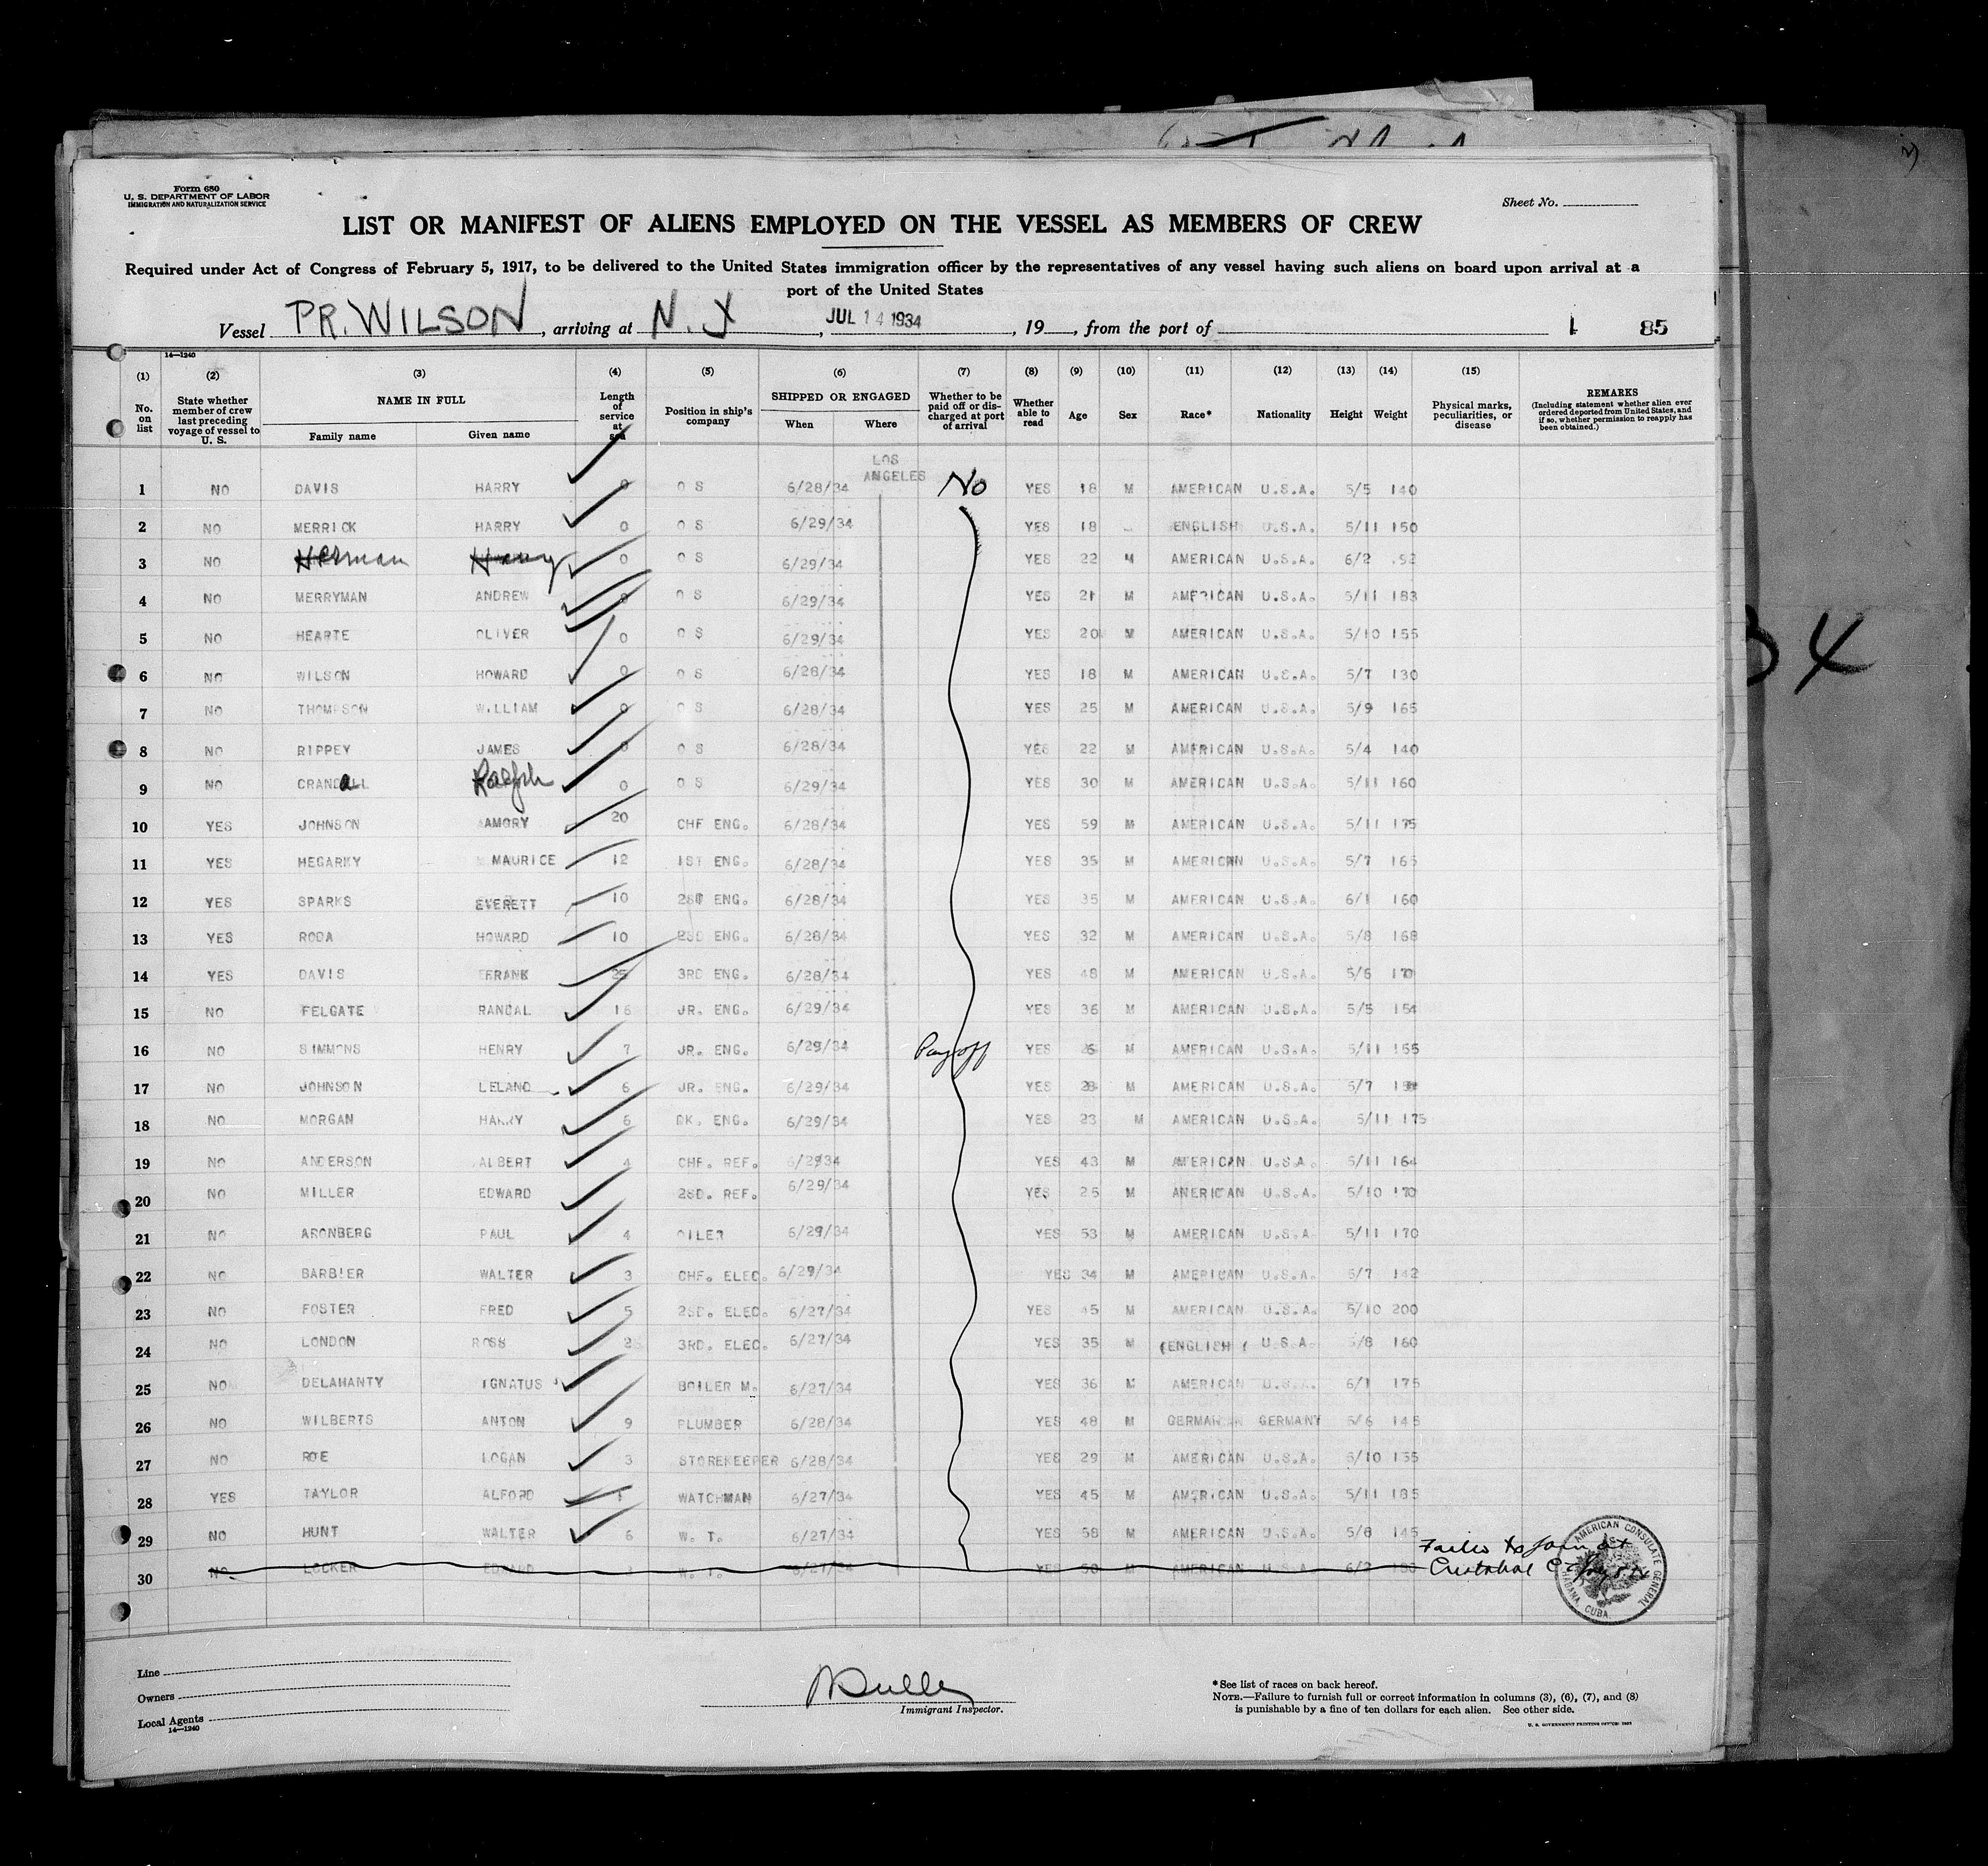 Form 680
U. S. DEPARTMENT OF LABOR
IMMIGRATION AND NATURALIZATION SERVICE
Sheet No.
LIST OR MANIFEST OF ALIENS EMPLOYED ON THE VESSEL AS MEMBERS OF CREW
Required under Act of Congress of February 5, 1917, to be delivered to the United States immigration officer by the representatives of any vessel having such aliens on board upon arrival at a
port of the United States
Vessel PR. WILSON, arriving at N. Y, JUL 14 1934, 19, from the port of 1 85
14—1240
(1) (2) (3) (4) (5) (6) (7) (8) (9) (10) (11) (12) (13) (14) (15)
No. on list
State whether member of crew last preceding voyage of vessel to U. S.
NAME IN FULL
Family name Given name
Length of service at sea
Position in ship's company
SHIPPED OR ENGAGED
When Where
Whether to be paid off or discharged at port of arrival
Whether able to read
Age Sex Race* Nationality Height Weight
Physical marks, peculiarities, or disease
REMARKS
(Including statement whether alien ever ordered deported from United States, and if so, whether permission to reapply has been obtained.)
LOS ANGELES
1 NO DAVIS HARRY 0 O S 6/28/34 No YES 18 M AMERICAN U.S.A. 5/5 140
2 NO MERRICK HARRY 0 O S 6/29/34 YES 18 ENGLISH U.S.A. 5/11 150
3 NO Herman Harry 0 O S 6/29/34 YES 22 M AMERICAN U.S.A. 6/2
4 NO MERRYMAN ANDREW O S 6/29/34 YES 21 M AMERICAN U.S.A. 5/11 183
5 NO HEARTE OLIVER 0 O S 6/29/34 YES 20 M AMERICAN U.S.A. 5/10 155
6 NO WILSON HOWARD 0 O S 6/28/34 YES 18 M AMERICAN U.S.A. 5/7 130
7 NO THOMPSON WILLIAM 0 O S 6/28/34 YES 25 M AMERICAN U.S.A. 5/9 165
8 NO RIPPEY JAMES O S 6/28/34 YES 22 M AMERICAN U.S.A. 5/4 140
9 NO CRANDALL Ralph 0 O S 6/29/34 YES 30 M AMERICAN U.S.A. 5/11 160
10 YES JOHNSON AMORY 20 CHF ENG. 6/28/34 YES 59 M AMERICAN U.S.A. 5/11 175
11 YES HEGARKY MAURICE 12 1ST ENG. 6/28/34 YES 35 M AMERICAN U.S.A. 5/7 165
12 YES SPARKS EVERETT 10 2SD ENG. 6/28/34 YES 35 M AMERICAN U.S.A. 6/1 160
13 YES RODA HOWARD 10 2SD ENG. 6/28/34 YES 32 M AMERICAN U.S.A. 5/8 168
14 YES DAVIS FRANK 25 3RD ENG. 6/28/34 YES 48 M AMERICAN U.S.A. 5/6 170
15 NO FELGATE RANDAL 16 JR. ENG. 6/29/34 YES 36 M AMERICAN U.S.A. 5/5 154
16 NO SIMMONS HENRY 7 JR. ENG. 6/29/34 Pay off YES 26 M AMERICAN U.S.A. 5/11 155
17 NO JOHNSON LELAND 6 JR. ENG. 6/29/34 YES 28 M AMERICAN U.S.A. 5/7
18 NO MORGAN HARRY 6 DK. ENG. 6/29/34 YES 23 M AMERICAN U.S.A. 5/11 175
19 NO ANDERSON ALBERT 4 CHF. REF. 6/2934 YES 43 M AMERICAN U.S.A. 5/11 164
20 NO MILLER EDWARD 2SD. REF. 6/29/34 YES 25 M AMERICAN U.S.A. 5/10 170
21 NO ARONBERG PAUL 4 OILER 6/29/34 YES 53 M AMERICAN U.S.A. 5/11 170
22 NO BARBIER WALTER 3 CHF. ELEC. 6/29/34 YES 34 M AMERICAN U.S.A. 5/7 142
23 NO FOSTER FRED 5 2SD. ELEC. 6/27/34 YES 45 M AMERICAN U.S.A. 5/10 200
24 NO LONDON ROSS 2 3RD. ELEC. 6/27/34 YES 35 M (ENGLISH ( U.S.A. 5/8 160
25 NO DELAHANTY IGNATUS BOILER M. 6/27/34 YES 36 M AMERICAN U.S.A. 6/1 175
26 NO WILBERTS ANTON 9 PLUMBER 6/28/34 YES 48 M GERMAN GERMANY 5/6 145
27 NO ROE LOGAN 3 STOREKEEPER 6/28/34 YES 29 M AMERICAN U.S.A. 5/10 155
28 YES TAYLOR ALFORD 1 WATCHMAN 6/27/34 YES 45 M AMERICAN U.S.A. 5/11 185
29 NO HUNT WALTER 6 W. T. 6/27/34 YES 58 M AMERICAN U.S.A. 5/8 145
30 NO LOCKER EDWARD W. T. 6/27/34 YES 50 M AMERICAN U.S.A. 6/2
Failed to Join at
Cristobal
AMERICAN CONSULATE GENERAL HABANA, CUBA.
Line
Owners
Local Agents
14—1240
Immigrant Inspector.
*See list of races on back hereof.
NOTE.—Failure to furnish full or correct information in columns (3), (6), (7), and (8)
is punishable by a fine of ten dollars for each alien. See other side.
34